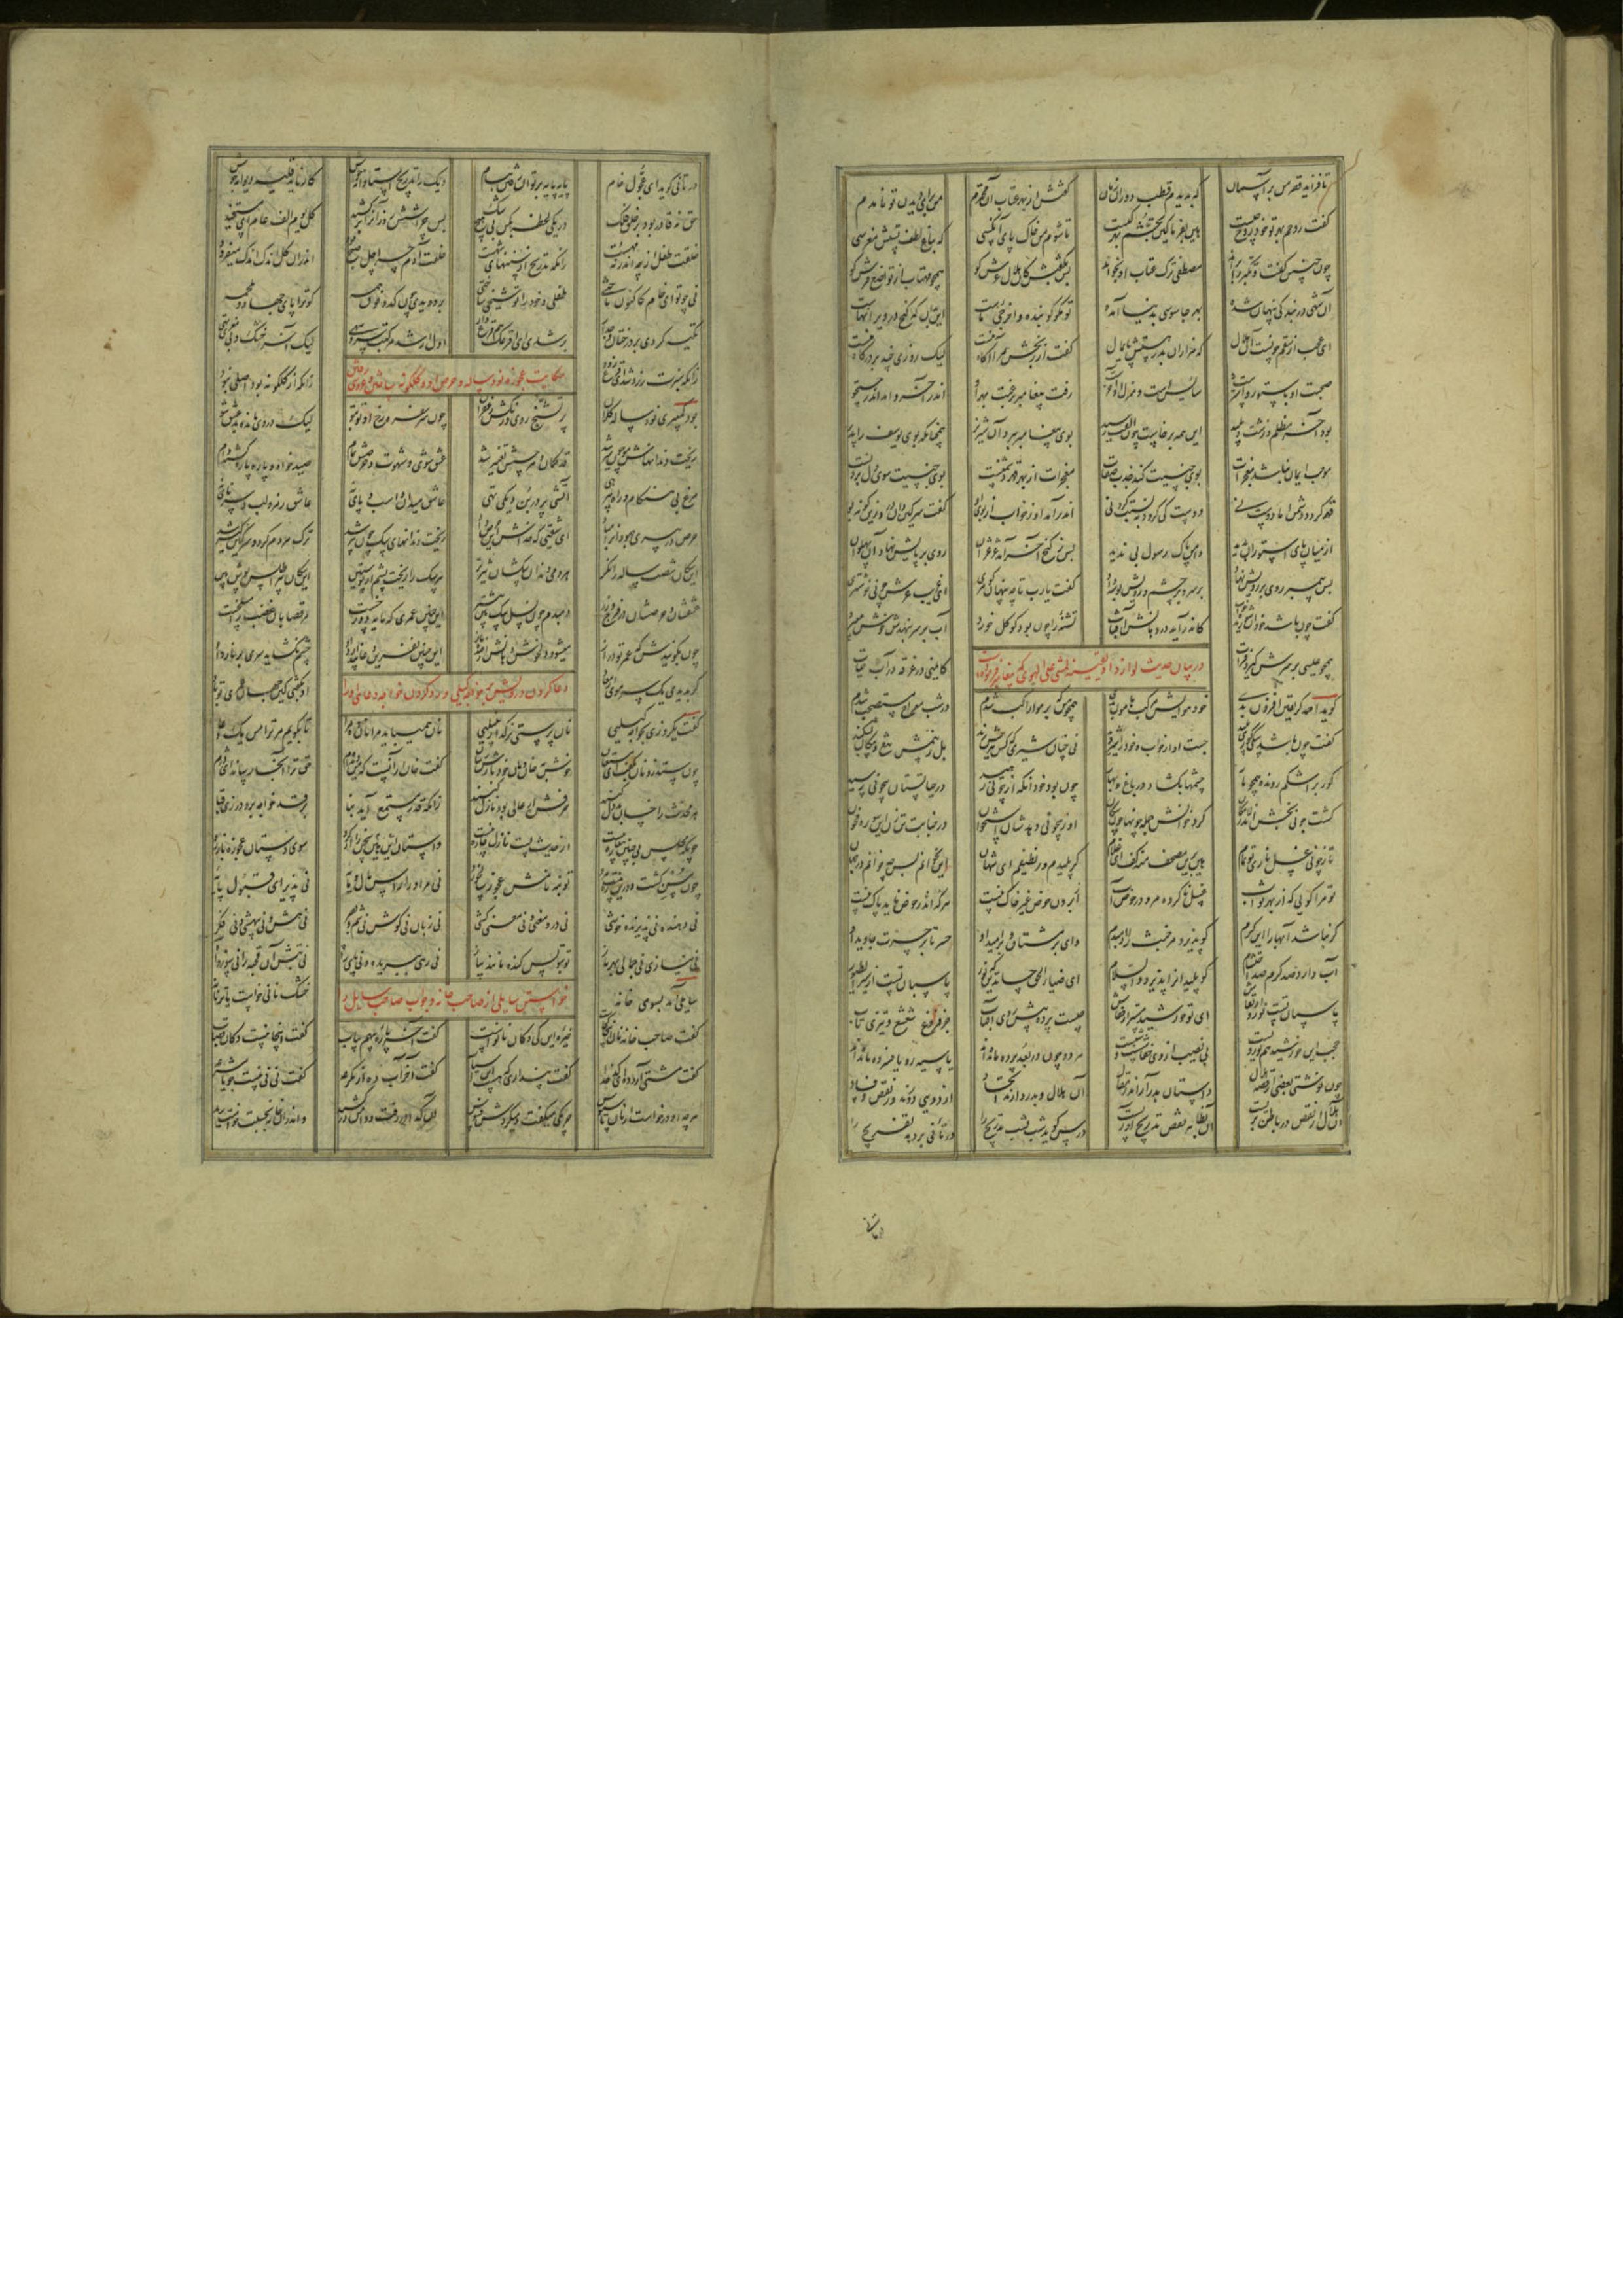 تا فزاید قصر من بر آسمان که بدیدم قطب دوران زمان گفتش از بهر عتاب آن محترم من برای دیدن تو نامدم
گفت روحم بهر تو خود روح چیست هین بفرما کین تجشم بهر کیست تا شوم من خاک پای آن کسی که بباغ لطف تستش مغرسی
چون چنین گفت و تکبر را براند مصطفی ترک عتاب او بخواند پس بگفتش کان هلال عرش کو همچو مهتاب از تواضع فرش کو
آن شهی در بندگی پنهان شده بهر جاسوسی بدنیا آمده تو مگو کو بنده و آخرچی ماست این بدان که گنج در ویرانهاست
ای عجب از سقم چونست آن هلال که هزاران بدر هستش پایمال گفت از رنجش مرا آگاه نیست لیک روزی چند بر درگاه نیست
صحبت او با ستور و استرست سایس است و منزلش آن آخرست رفت پیغامبر برغبت بهر او اندر آخر و آمد اندر جستجو
بود آخر مظلم و زشت و پلید این همه برخاست چون الفت رسید بوی پیغامبر ببرد آن شیر نر همچنانکه بوی یوسف را پدر
موجب ایمان نباشد معجزات بوی جنسیت کند جذب صفات معجزات از بهر قهر دشمنست بوی جنسیت سوی دل بردنست
قهر گردد دشمن اما دوست نی دوست کی گردد ببسته گردنی اندر آمد او ز خواب از بوی او گفت سرگین دان و زین گونه بو
از میان پای استوران بدید دامن پاک رسول بی ندید پس ز کنج آخر آمد غژغژان روی بر پایش نهاد آن پهلوان
پس پیمبر روی بر رویش نهاد بر سر و بر چشم و رویش بوسه داد گفت یارب تا چه پنهان گوهری ای غریب عرش چونی خوشتری
گفت چون باشد خود آن شوریده خواب کاندر آید در دهانش آفتاب تشنه را چون بود کو گل خورد آب بر سر بنهدش خوش می برد
همچو عیسی بر سرش گیرد فرات کایمنی در غرقه در آب حیات
در بیان حدیث لو ازداد یقینه لمشی علی الهوی که پیغامبر فرموده است
گوید احمد گر یقین افزون بدی خود هوایش مرکب هامون بدی همچو من بر هوا راکب شدم در شب معراج مستصحب شدم
گفت چون باشد سگی کوری پلید جست او از خواب و خود را شیر دید نی چنان شیری که کس تیرش زند بل ز بیمش تیغ و پیکان بشکند
کور بر اشکم رونده همچو مار چشمها بگشاد در باغ و بهار چون بود خود آنکه از چونی رهید در حیاتستان بیچونی رسید
گشت چونی بخش اندر لامکان گرد خوانش جمله چونها چون سگان او ز بیچونی دهدشان استخوان در جنابت تن زن این سوره مخوان
تا ز چونی غسل ناری تو تمام هین برین مصحف منه کف ای غلام گر پلیدم ور نظیفم ای شهان این نخوانم پس چه خوانم در جهان
تو مرا گویی که از بهر ثواب غسل ناکرده مرو در حوض آب از برون حوض غیر خاک نیست هر که اندر حوض ناید پاک نیست
گر نباشد آبها را این کرم کو پذیرد مر خبث را دمبدم وای بر مشتاق و بر امید او حسرتا بر حسرت جاوید او
آب دارد صد کرم صد احتشام کو پلیدان را پذیرد والسلام ای ضیاء الحق حسام الدین که نور پاسبان تست از شر الطیور
پاسبان تست نور و ارتقاش ای تو خورشید مستر از خفاش چیست پرده پیش روی آفتاب جز فزونی شعشع و تیزی تاب
حجب این خورشید هم نور ربست بی نصیب از وی خفاشست و شبست هر دو چون در بعد پرده مانده اند یا سیه رو یا فسرده مانده اند
چون نوشتی بعضی از قصه هلال داستان بدر آر اندر مقال آن هلال و بدر دارند اتحاد از دویی دورند و از نقص و فساد
آن هلال از نقص در باطن بریست آن بظاهر نقص تدریج آوریست درس گوید شب بشب تدریج را در تانی بر دهد تفریج را
در تانی گوید ای عجول خام پایه پایه بر توان رفتن ببام دیک را تدریج و استادانه جوش کار ناید قلیه دیوانه جوش
حق نه قادر بود بر خلق فلک در یکی لحظه بکن بی هیچ شک پس چرا شش روز آنرا در کشید کل یوم الف عام ای مستفید
خلقت طفل از چه اندر نه مهست زانکه تدریج از سنتهای شهست خلقت آدم چرا چل صبح بود اندر آن گل اندک اندک میفزود
نی چو تو ای خام کاکنون تاختی طفلی و خود را تو شیخی ساختی بر دویدی چون کدو فوق همه کو ترا پای جهاد و ملحمه
تکیه کردی بر درختان و جدار بر شدی ای اقرعک هم قرع وار اول ار شد مرکبت سرو سهی لیک آخر خشک و بی مغزی تهی
زانکه سبزت زرد شد ای قرع زود زانکه از گلگونه بود اصلی نبود
حکایت عجوزه نود ساله و حرص او و گلگونه
بود کمپیری نود ساله کلان پر تشنج روی و رنگش زعفران چون سر سفره رخ او تو بتو لیک در وی مانده بد عشق شو
ریخت دندانهاش و مو چون شیر شد قد کمان و هر حسش تغییر شد عشق شوی و شهوت و حرصش تمام صید خواه و پاره پاره گشته دام
مرغ بی هنگام و راه بی رهی آتشی پر در بن دیکی تهی عاشق میدان و اسب و پای نی عاشق زمر و لب و سرنای نی
حرص در پیری جهود را مباد ای شقیی که خداش این حرص داد ریخت دندانهای سگ چون پیر شد ترک مردم کرد و سرگین گیر شد
این سگان شصت ساله را نگر هر دمی دندان سگشان تیزتر پیر سگ را ریخت پشم از پوستین این سگان پیر اطلس پوش بین
عشقشان و حرصشان در فرج و زر دمبدم چون نسل سگ بین بیشتر این چنین عمری که مایه دوزخست مر قصابان غضب را مسلخست
چون بگویندش که عمر تو دراز میشود دلخوش دهانش از خنده باز این چنین نفرین دعا پندارد او چشم نگشاید سری برنارد او
گر بدیدی یک سر موی از معاد او بگفتی این چنین عمر تو باد
دعا کردن درویش خواجه گیلی و رد کردن خواجه دعای او را
گفت یکروزی بخواجه گیلیی نان پرستی نر گدا زنبیلیی نان همی باید مرا نان ده مرا تا بگویم مر ترا من یک دعا
چون ستد زو نان بگفت ای مستعان خوش بخان و مان خود بازش رسان گفت خان ار آنست که من دیده ام حق ترا آنجا رساند ای دژم
هر محدث را خسان باذل کنند حرفش ار عالی بود نازل کنند زانکه قدر مستمع آید نبا بر قد خواجه برد درزی قبا
چونکه مجلس بی چنین پیغاره نیست از حدیث پست نازل چاره نیست واستان این سخن را از گرو سوی دستان عجوزه باز رو
چون مسن گشت و درین ره نیست مرد تو بنه نامش عجوز سالخورد نی مر او را راس مال و پایه نی پذیرای قبول مایه
نی دهنده نی پذیرنده خوشی نی درو معنی و نی معنی کشی نی زبان نی گوش نی عقل و بصر نی هش و نی بیهشی و نی فکر
نی نیاز و نی جمالی بهر ناز تو بتویش گنده مانند پیاز نی رهی ببریده و نی پای راه نی تپش آن قحبه را نی سوز و آه
سایلی آمد بسوی خانه خشک نانی خواست یا تر نانه
خواستن سایلی از صاحب خانه و جواب صاحب سایل را
گفت صاحب خانه نان اینجا کجاست خیره این کی دکان نانواست گفت آخر پاره پیهم بیاب گفت اینجا نیست دکان قصاب
گفت مشتی آرد ده ای کدخدا گفت پنداری که هست این آسیا گفت آخر آب ده از مکرعه گفت نی نی نیست جو یا مشرعه
هر چه او درخواست از نان تا سبوس چربکی میگفت و میکردش فسوس آن گدا در رفت و دامن در کشید و اندر آن خانه بحسبت خواست رید